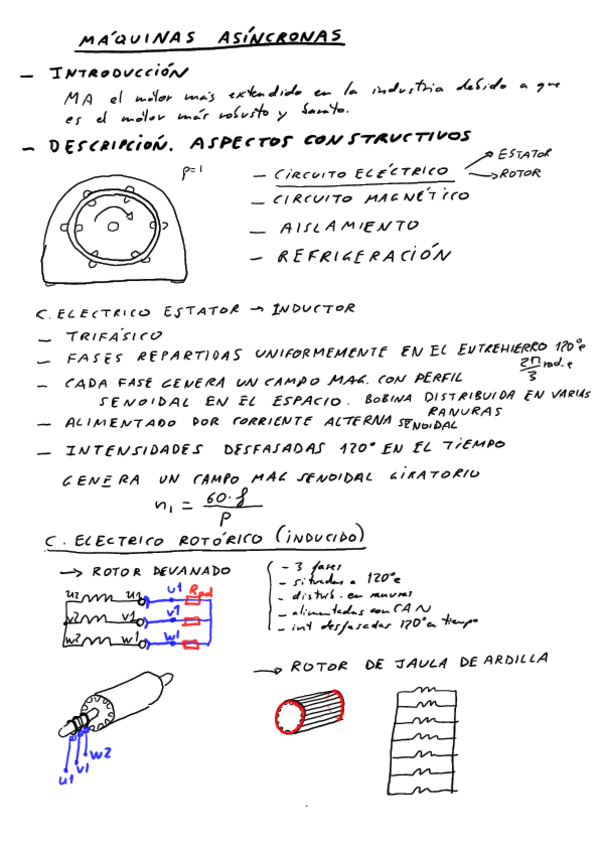 MÁQUINAS ASÍNCRONAS
- INTRODUCCIÓN
MA el motor más extendido en la industria debido a que
es el motor más robusto y barato.
- DESCRIPCION. ASPECTOS CONSTRUCTIVOS
p=1
- CIRCUITO ELÉCTRICO
ESTATOR
ROTOR
- CIRCUITO MAGNÉTICO
- AISLAMIENTO
- REFRIGERACIÓN
C. ELECTRICO ESTATOR → INDUCTOR
- TRIFÁSICO
- FASES REPARTIDAS UNIFORMEMENTE EN EL ENTREHIERRO 120°e
2π/3 rad.e
- CADA FASE GENERA UN CAMPO MAG. CON PERFIL
SENOIDAL EN EL ESPACIO. BOBINA DISTRIBUIDA EN VARIAS
RANURAS
- ALIMENTADO POR CORRIENTE ALTERNA SENOIDAL
- INTENSIDADES DESFASADAS 120° EN EL TIEMPO
GENERA UN CAMPO MAG SENOIDAL GIRATORIO
n₁ = 60·f / P
C. ELECTRICO ROTÓRICO (INDUCIDO)
→ ROTOR DEVANADO
- 3 fases
- situadas a 120°e
- distrib. en ranuras
- alimentadas con CA
- int desfasadas 120° en tiempo
u2 u1 u1
v2 v1 v1
w2 w1 w1
→ ROTOR DE JAULA DE ARDILLA
w2
v1
u1